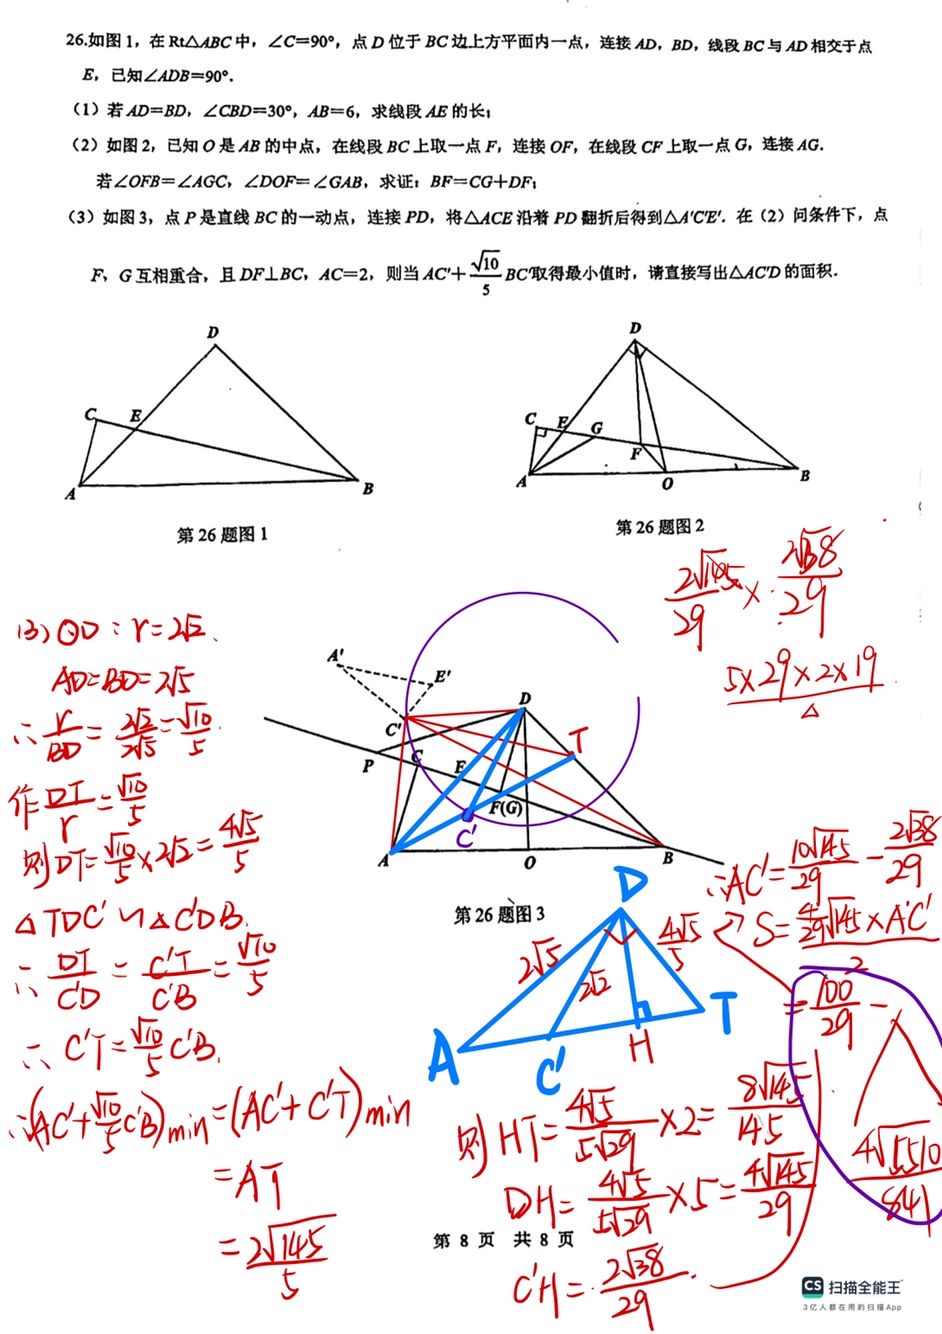 26.如图1，在Rt△ABC中，∠C=90°，点D位于BC边上方平面内一点，连接AD，BD，线段BC与AD相交于点
E，已知∠ADB=90°．
（1）若AD=BD，∠CBD=30°，AB=6，求线段AE的长；
（2）如图2，已知O是AB的中点，在线段BC上取一点F，连接OF，在线段CF上取一点G，连接AG．
若∠OFB=∠AGC，∠DOF=∠GAB，求证：BF=CG+DF；
（3）如图3，点P是直线BC的一动点，连接PD，将△ACE沿着PD翻折后得到△A'C'E'．在（2）问条件下，点
F、G互相重合，且DF⊥BC，AC=2，则当AC'+√10/5 BC'取得最小值时，请直接写出△AC'D的面积．
D
C E
A B
第26题图1
D
C E G
F
A O B
第26题图2
2√145/29 × 2√38/29
5×29×2×19
(3) ⊙D：r=2√2．
AD=BD=2√5
∴ r/BD = 2√2/2√5 = √10/5
作 DT/r = √10/5
则DT=√10/5×2√2=4√5/5
△TDC'∽△C'DB．
∴ DT/C'D = C'T/C'B = √10/5
∴ C'T=√10/5 C'B．
∴(AC'+√10/5 C'B)min=(AC'+C'T)min
=AT
=2√145/5
A' E'
C' D
P C E T
F(G)
C'
A O B
第26题图3
D
2√5 2√2 4√5/5
A C' H T
则HT=4√5/5√29 ×2=8√145/145
DH=4√5/5√29 ×5=4√145/29
C'H=2√38/29
∴AC'=10√145/29 - 2√38/29
S=4/29√145×AC'/2
=100/29 - 4√5510/841
第 8 页 共 8 页
CS 扫描全能王
3亿人都在用的扫描App